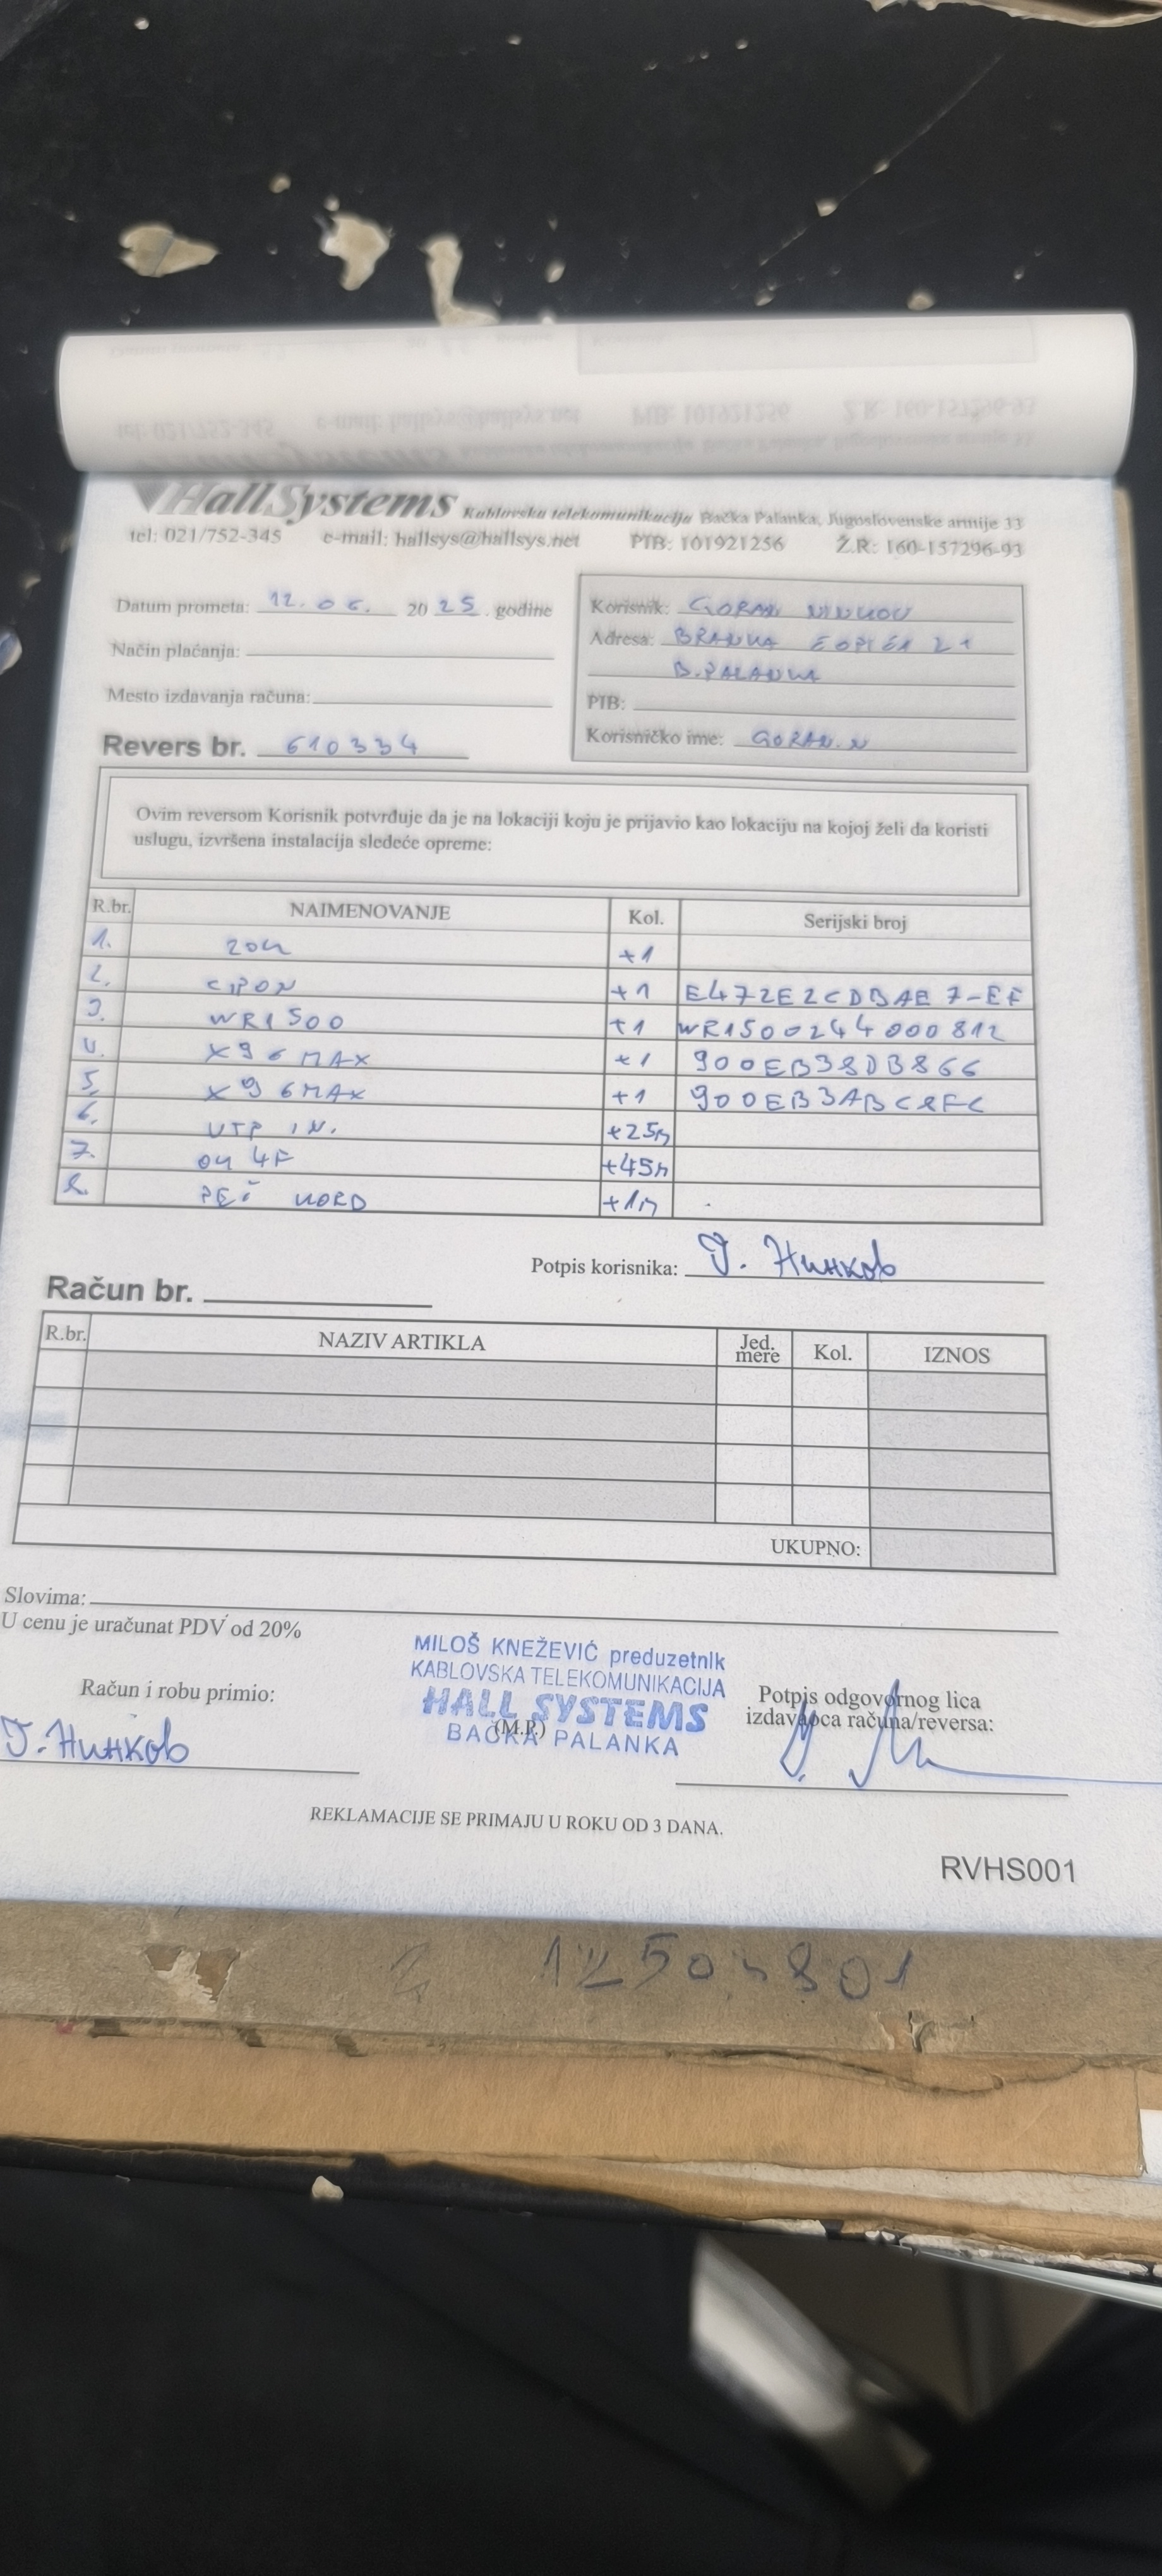 HallSystems Kablovska telekomunikacija Bačka Palanka, Jugoslovenske armije 33
tel: 021/752-345 e-mail: hallsys@hallsys.net PIB: 101921256 Ž.R: 160-157296-93
Datum prometa: 12.06. 20 25. godine
Korisnik: GORAN NINKOV
Način plaćanja:
Adresa: BRANKA ĆOPIĆA 21
B.PALANKA
Mesto izdavanja računa:
PIB:
Revers br. 610334
Korisničko ime: GORAN.N
Ovim reversom Korisnik potvrđuje da je na lokaciji koju je prijavio kao lokaciju na kojoj želi da koristi
uslugu, izvršena instalacija sledeće opreme:
R.br. NAIMENOVANJE Kol. Serijski broj
1. +1
2. +1 E472E2CDBAE7-EF
3. WR1500 +1 WR1500244000812
4. X96MAX +1 900EB38DB866
5. X96MAX +1 900EB3ABC8FC
6. UTP IN. +25m
7. 4F +45m
8. +1m
Potpis korisnika: Г. Нинков
Račun br.
R.br. NAZIV ARTIKLA Jed. mere Kol. IZNOS
UKUPNO:
Slovima:
U cenu je uračunat PDV od 20%
MILOŠ KNEŽEVIĆ preduzetnik
KABLOVSKA TELEKOMUNIKACIJA
HALL SYSTEMS
(M.P.)
BAČKA PALANKA
Račun i robu primio:
Г. Нинков
Potpis odgovornog lica
izdavaoca računa/reversa:
REKLAMACIJE SE PRIMAJU U ROKU OD 3 DANA.
RVHS001